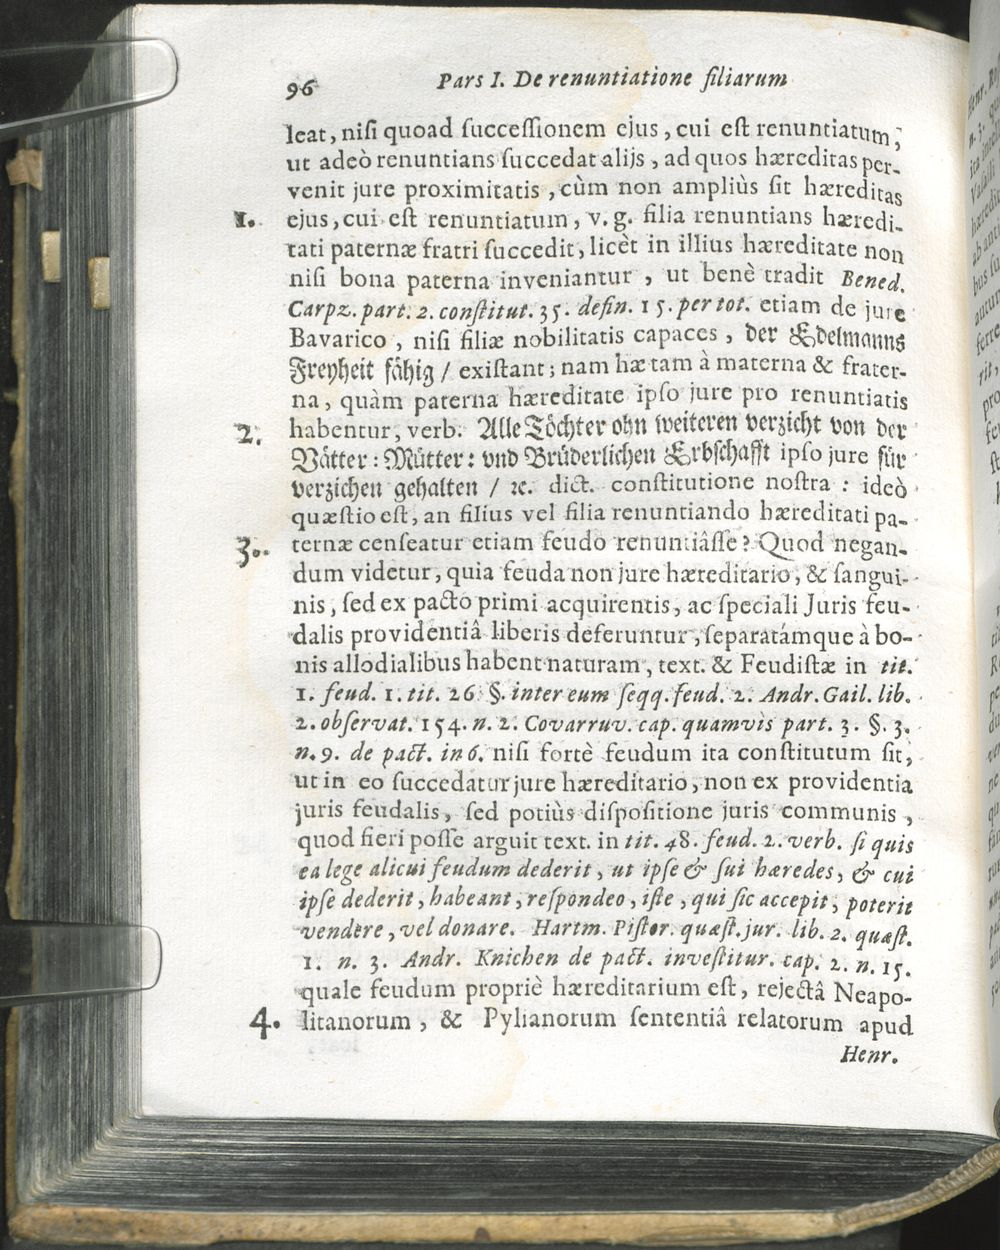 96 Pars I. De renuntiatione filiarum
leat, niſi quoad ſucceſſionem ejus, cui eſt renuntiatum,
ut adeò renuntians ſuccedat alijs, ad quos hæreditas per-
venit jure proximitatis, cùm non ampliùs ſit hæreditas
1. ejus, cui eſt renuntiatum, v. g. filia renuntians hæredi-
tati paternæ fratri ſuccedit, licèt in illius hæreditate non
niſi bona paterna inveniantur, ut benè tradit Bened.
Carpz. part. 2. conſtitut. 35. defin. 15. per tot. etiam de jure
Bavarico, niſi filiæ nobilitatis capaces, der Edelmanns
Freyheit fähig / exiſtant; nam hæ tam à materna & frater-
na, quàm paterna hæreditate ipſo jure pro renuntiatis
2. habentur, verb. Alle Töchter ohn weiteren verzicht von der
Vätter: Mütter: vnd Brüderlichen Erbſchafft ipſo jure für
verzichen gehalten / ꝛc. dict. conſtitutione noſtra: ideò
quæſtio eſt, an filius vel filia renuntiando hæreditati pa-
3. ternæ cenſeatur etiam feudo renuntiâſſe? Quod negan-
dum videtur, quia feuda non jure hæreditario, & ſangui-
nis, ſed ex pacto primi acquirentis, ac ſpeciali Juris feu-
dalis providentiâ liberis deferuntur, ſeparatámque à bo-
nis allodialibus habent naturam, text. & Feudiſtæ in tit.
1. feud. 1. tit. 26. §. inter eum ſeqq. feud. 2. Andr. Gail. lib.
2. obſervat. 154. n. 2. Covarruv. cap. quamvìs part. 3. §. 3.
n. 9. de pact. in 6. niſi fortè feudum ita conſtitutum ſit,
ut in eo ſuccedatur jure hæreditario, non ex providentia
juris feudalis, ſed potiùs diſpoſitione juris communis,
quod fieri poſſe arguit text. in tit. 48. feud. 2. verb. ſi quis
ea lege alicui feudum dederit, ut ipſe & ſui hæredes, & cui
ipſe dederit, habeant, reſpondeo, iſte, qui ſic accepit, poterit
vendere, vel donare. Hartm. Piſtor. quæſt. jur. lib. 2. quæſt.
1. n. 3. Andr. Knichen de pact. inveſtitur. cap. 2. n. 15.
quale feudum propriè hæreditarium eſt, rejectâ Neapo-
4. litanorum, & Pylianorum ſententiâ relatorum apud
Henr.